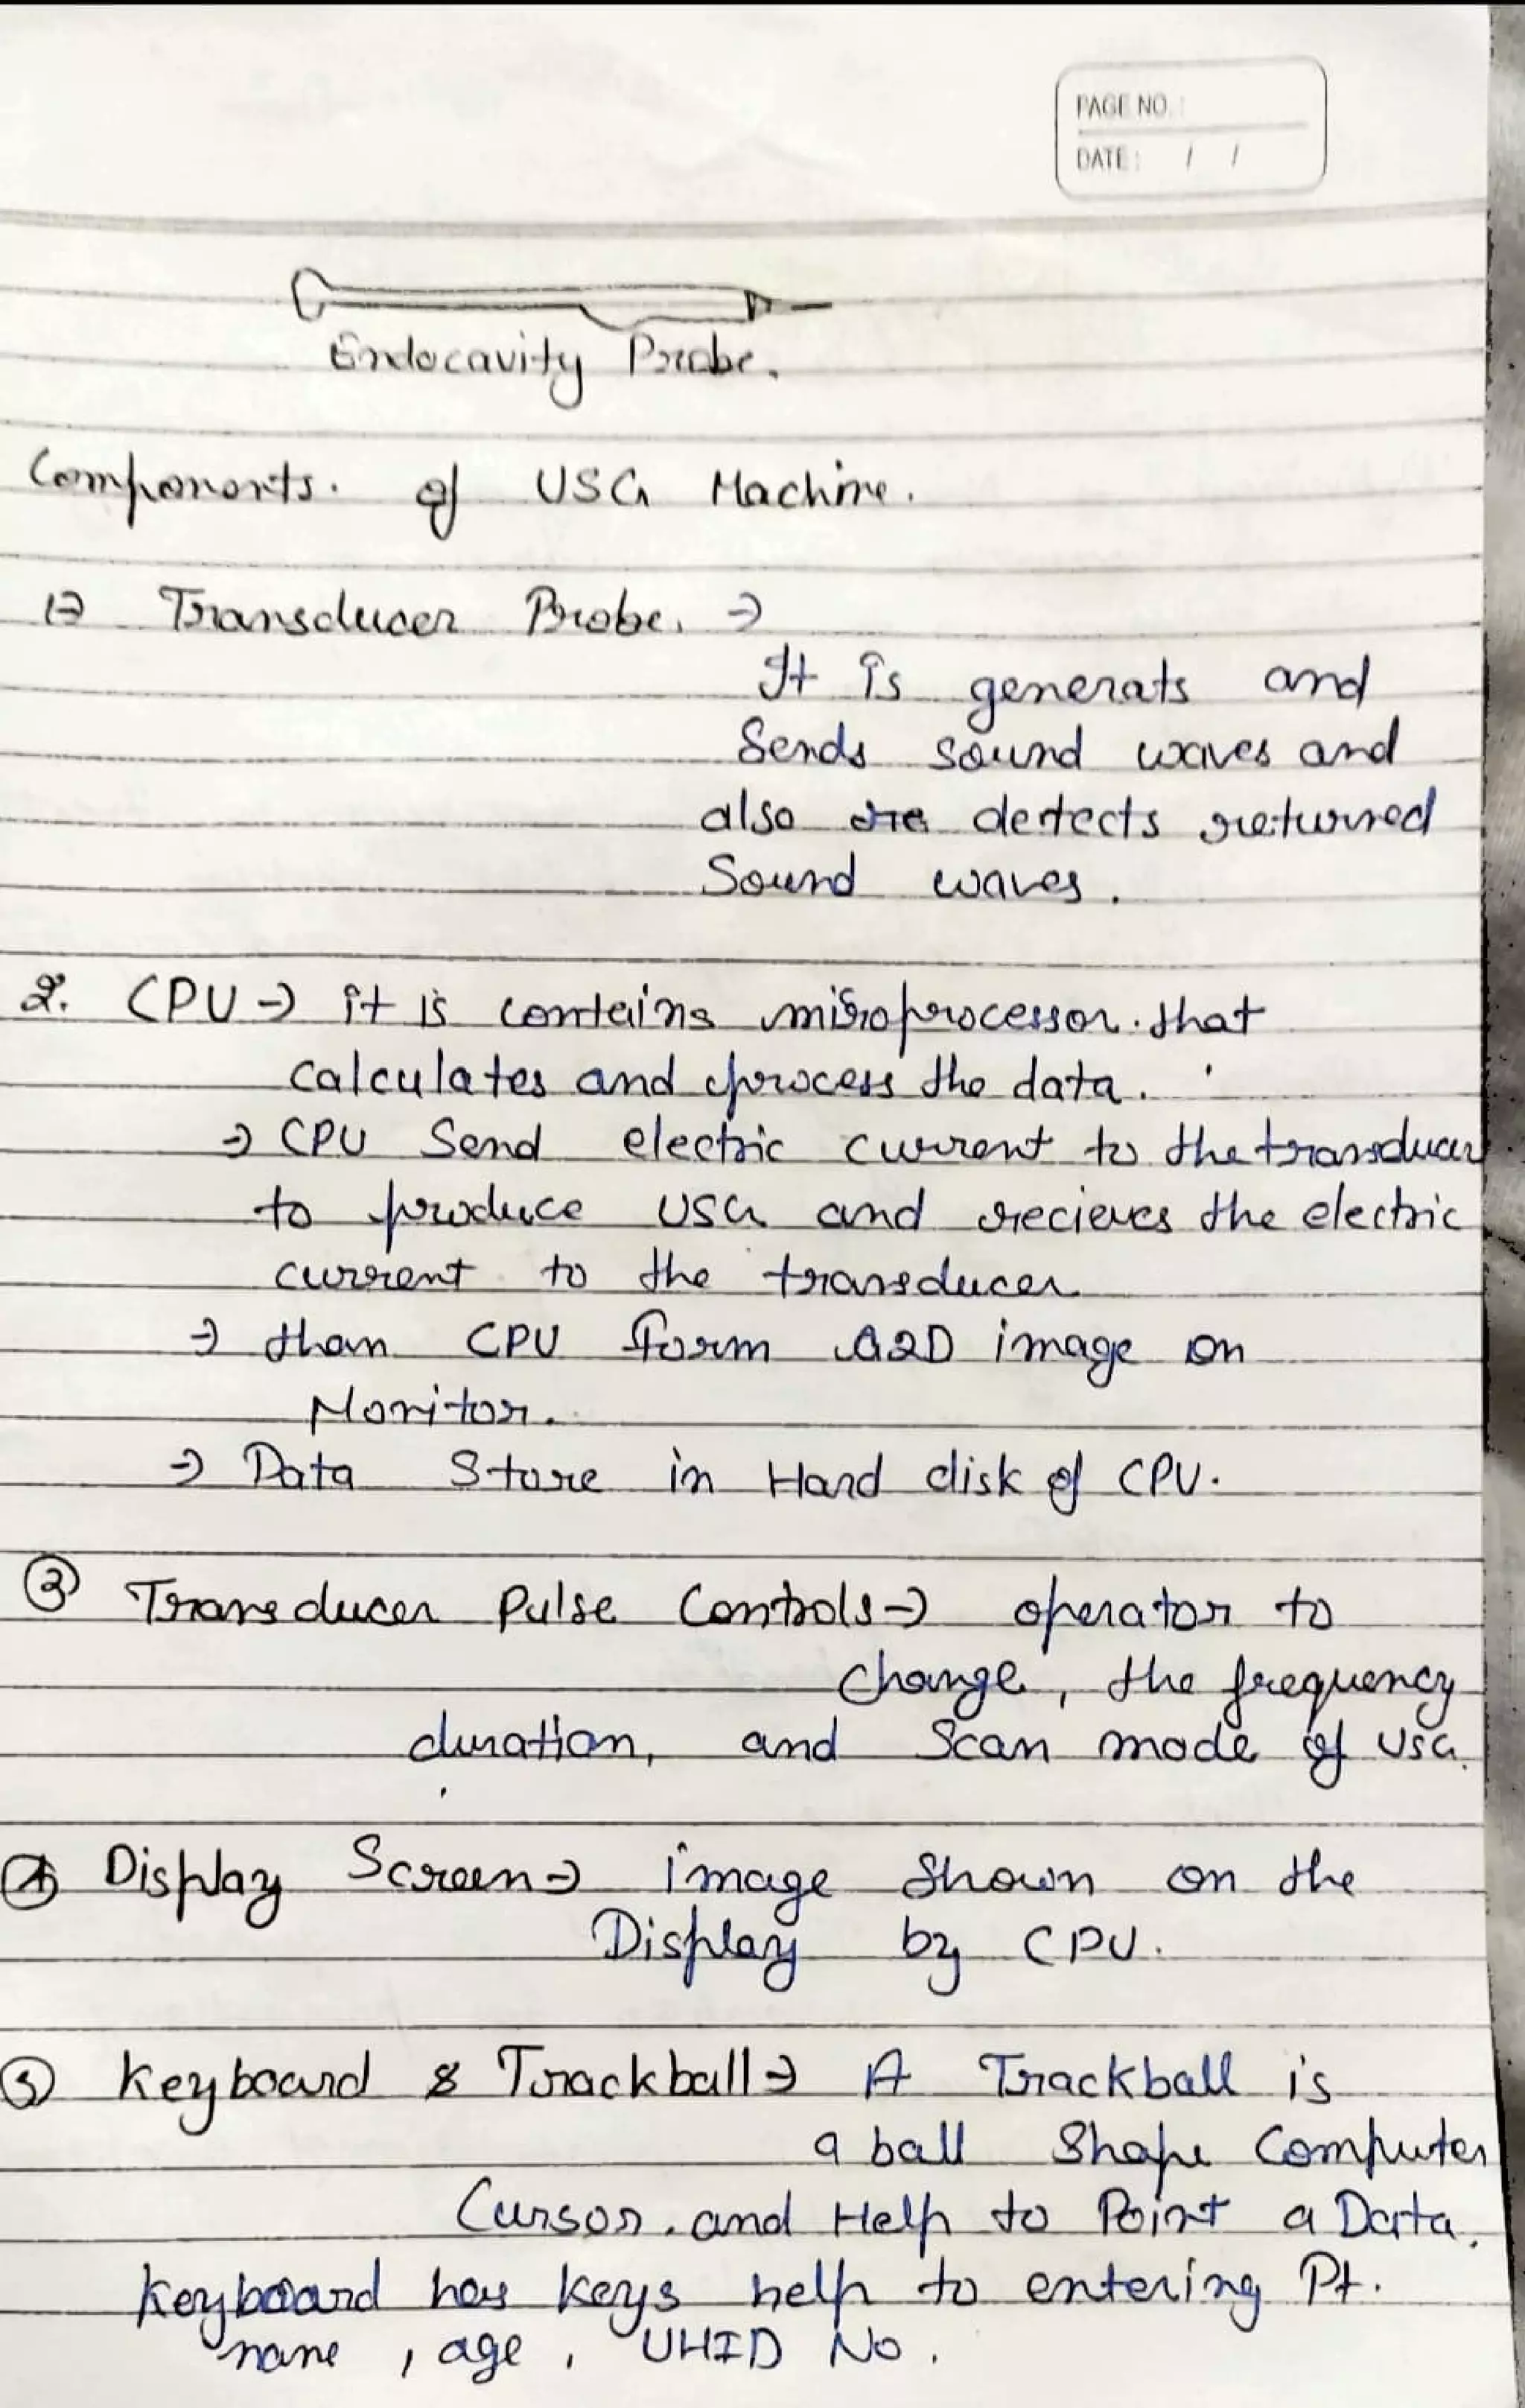 PAGE NO. :
DATE : / /
Endocavity Probe.
Components. of USG Machine.
1→ Transducer Probe. →
It is generats and
Sends sound waves and
also detects returned
Sound waves.
2. CPU → it is contains microprocessor. that
calculates and process the data.
→ CPU Send electric current to the transducer
to produce USG and recieves the electric
current to the transducer
→ than CPU form a 2D image on
Monitor.
→ Data Store in Hard disk of CPU.
③ Transducer Pulse Controls → operator to
change, the frequency
duration, and Scan mode of USG.
④ Display Screen → image Shown on the
Display by CPU.
⑤ Keyboard & Trackball → A Trackball is
a ball Shape Computer
Cursor. and Help to Point a Data.
Keyboard has keys help to entering Pt.
name , age , UHID No .